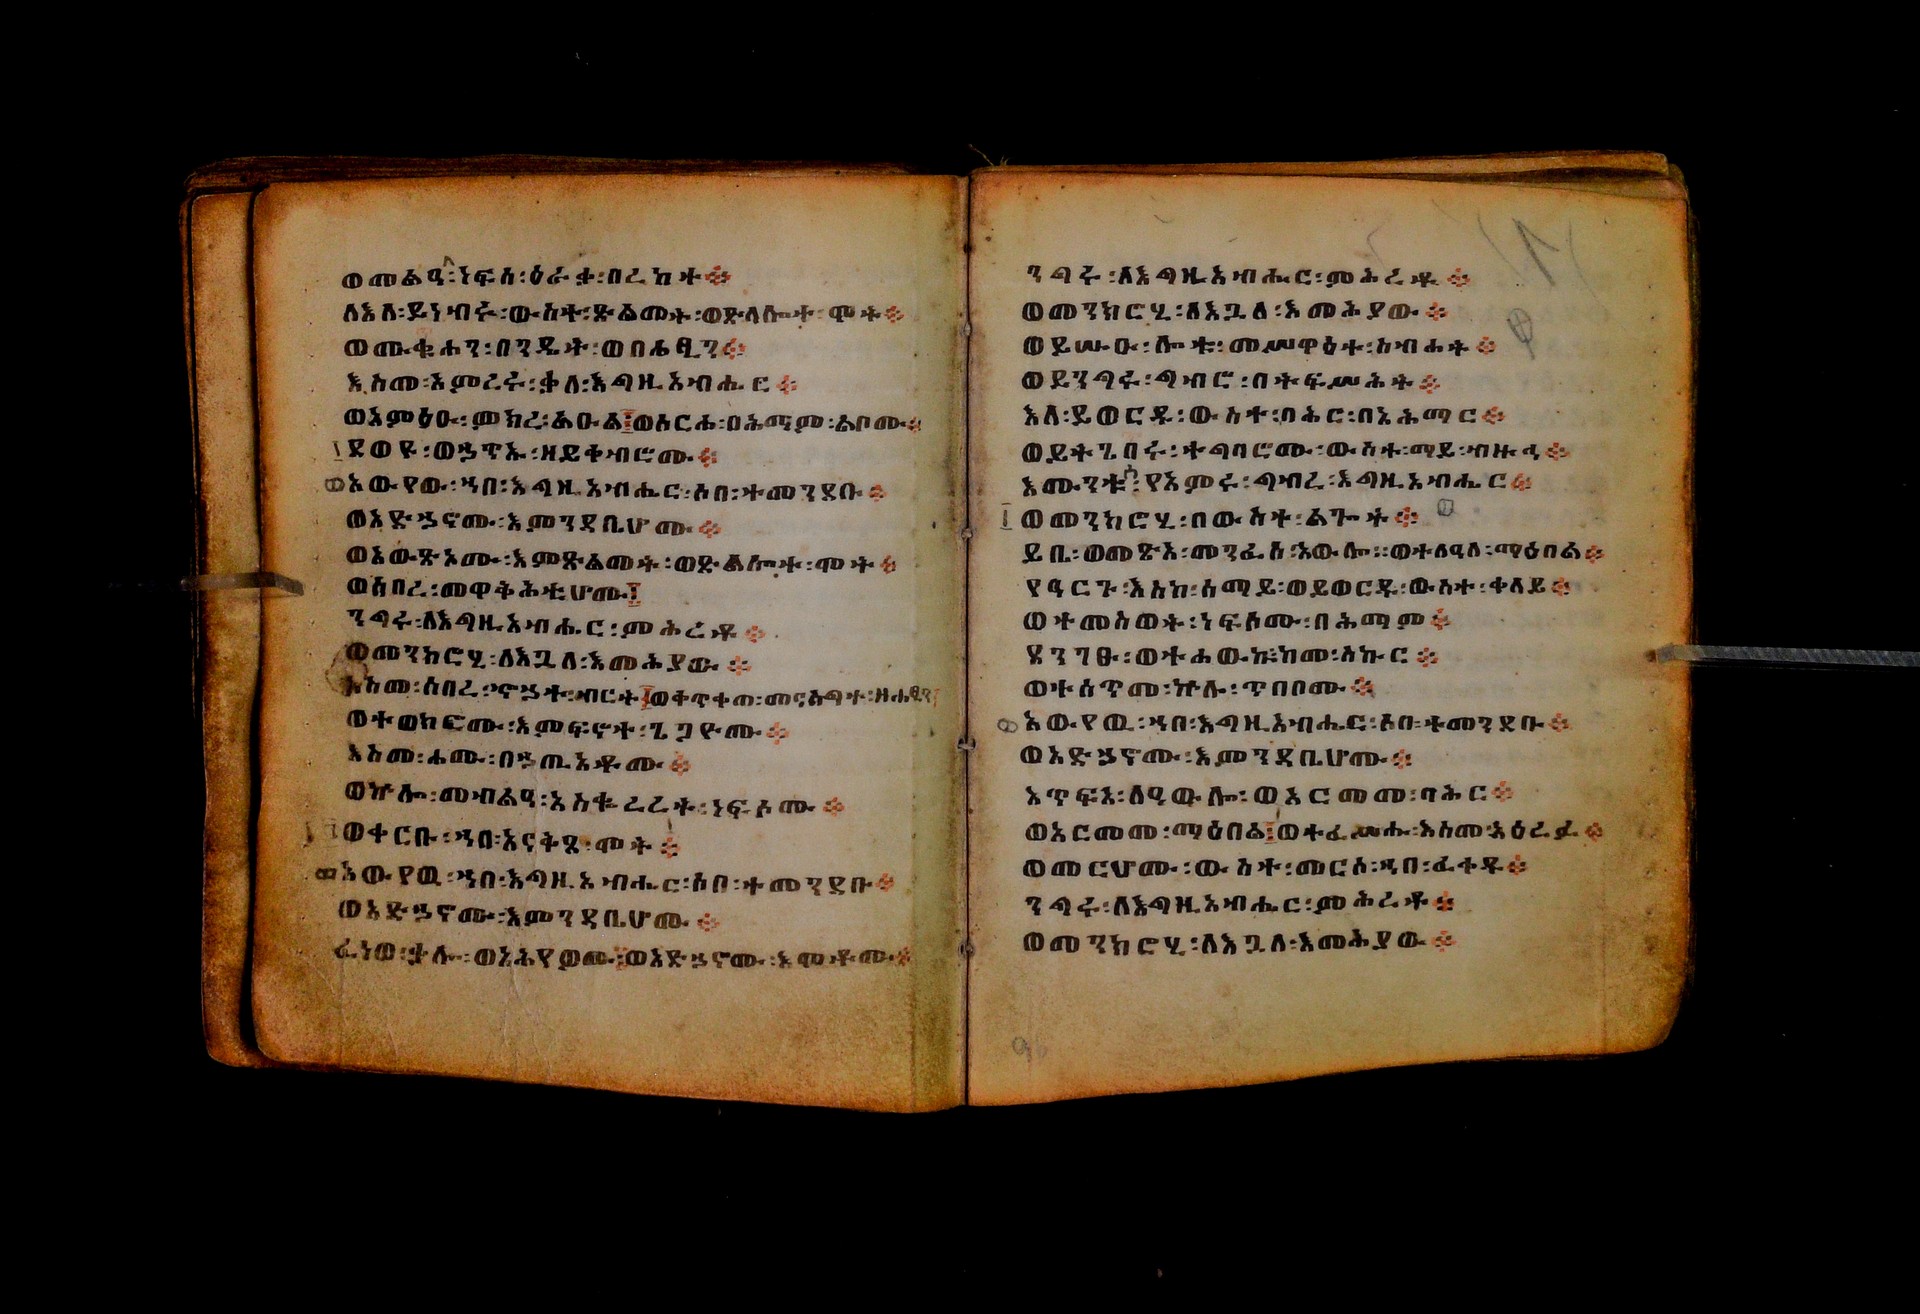 ወመልዓ፡ነፍስ፡ዕራቃ፡በረከት፨
ለእለ፡ይነብሩ፡ውስተ፡ጽልመት፡ወጽላሎተ፡ሞት፨
ወሙቁሓን፡በንዴት፡ወበሐፂን፨
እስመ፡አምረሩ፡ቃለ፡እግዚአብሔር፨
ወአምዕዑ፡ምክረ፡ልዑል፤ወሰርሐ፡በሕማም፡ልቦሙ፨
ደወዩ፡ወኃጥኡ፡ዘይቀብሮሙ፨
አውየው፡ኀበ፡እግዚአብሔር፡ሶበ፡ተመንደቡ፨
ወአድኃኖሙ፡እምንዳቤሆሙ፨
ወአውጽኦሙ፡እምጽልመት፡ወጽላሎተ፡ሞት፨
ወሰበረ፡መዋቅሕቲሆሙ፤
ንግሩ፡ለእግዚአብሔር፡ምሕረቶ፨
ወመንክሮሂ፡ለእጓለ፡እመሕያው፨
እስመ፡ሰበረ፡ኆኃተ፡ብርት፤ወቀጥቀጠ፡መናስግተ፡ዘሐፂን፤
ወተወክፎሙ፡እምፍኖተ፡ጌጋዮሙ፨
እስመ፡ሐሙ፡በኃጢአቶሙ፨
ወኵሎ፡መብልዓ፡አስቆረረት፡ነፍሶሙ፨
ወቀርቡ፡ኀበ፡አናቅጸ፡ሞት፨
አውየዉ፡ኀበ፡እግዚአብሔር፡ሶበ፡ተመንደቡ፨
ወአድኃኖሙ፡እምንዳቤሆሙ፨
ፈነወ፡ቃሎ፡ወአሕየዎሙ፤ወአድኃኖሙ፡እሞቶሙ፨
ንግሩ፡ለእግዚአብሔር፡ምሕረቶ፨
ወመንክሮሂ፡ለእጓለ፡እመሕያው፨
ወይሡዑ፡ሎቱ፡መሥዋዕተ፡ስብሐት፨
ወይንግሩ፡ግብሮ፡በትፍሥሕት፨
እለ፡ይወርዱ፡ውስተ፡በሕር፡በአሕማር፨
ወይትጌበሩ፡ተግባሮሙ፡ውስተ፡ማይ፡ብዙኅ፨
እሙንቱ፡የአምሩ፡ግብረ፡እግዚአብሔር፨
ወመንክሮሂ፡በውስተ፡ልጐት፨
ይቤ፡ወመጽአ፡መንፈሰ፡አውሎ፡፡ወተለዓለ፡ማዕበል፨
የዓርጉ፡እስከ፡ሰማይ፡ወይወርዱ፡ውስተ፡ቀላይ፨
ወተመስወት፡ነፍሶሙ፡በሕማም፨
ደንገፁ፡ወተሐውኩ፡ከመ፡ስኩር፨
ወተሰጥመ፡ኵሉ፡ጥበቦሙ፨
አውየዉ፡ኀበ፡እግዚአብሔር፡ሶበ፡ተመንደቡ፨
ወአድኃኖሙ፡እምንዳቤሆሙ፨
አጥፍአ፡ለዓውሎ፡ወአርመመ፡ባሕር፨
ወአርመመ፡ማዕበል፤ወተፈሥሑ፡እስመ፡አዕረፈ፨
ወመርሆሙ፡ውስተ፡መርሶ፡ኀበ፡ፈተዱ፨
ንግሩ፡ለእግዚአብሔር፡ምሕረቶ፨
ወመንክሮሂ፡ለእጓለ፡እመሕያው፨